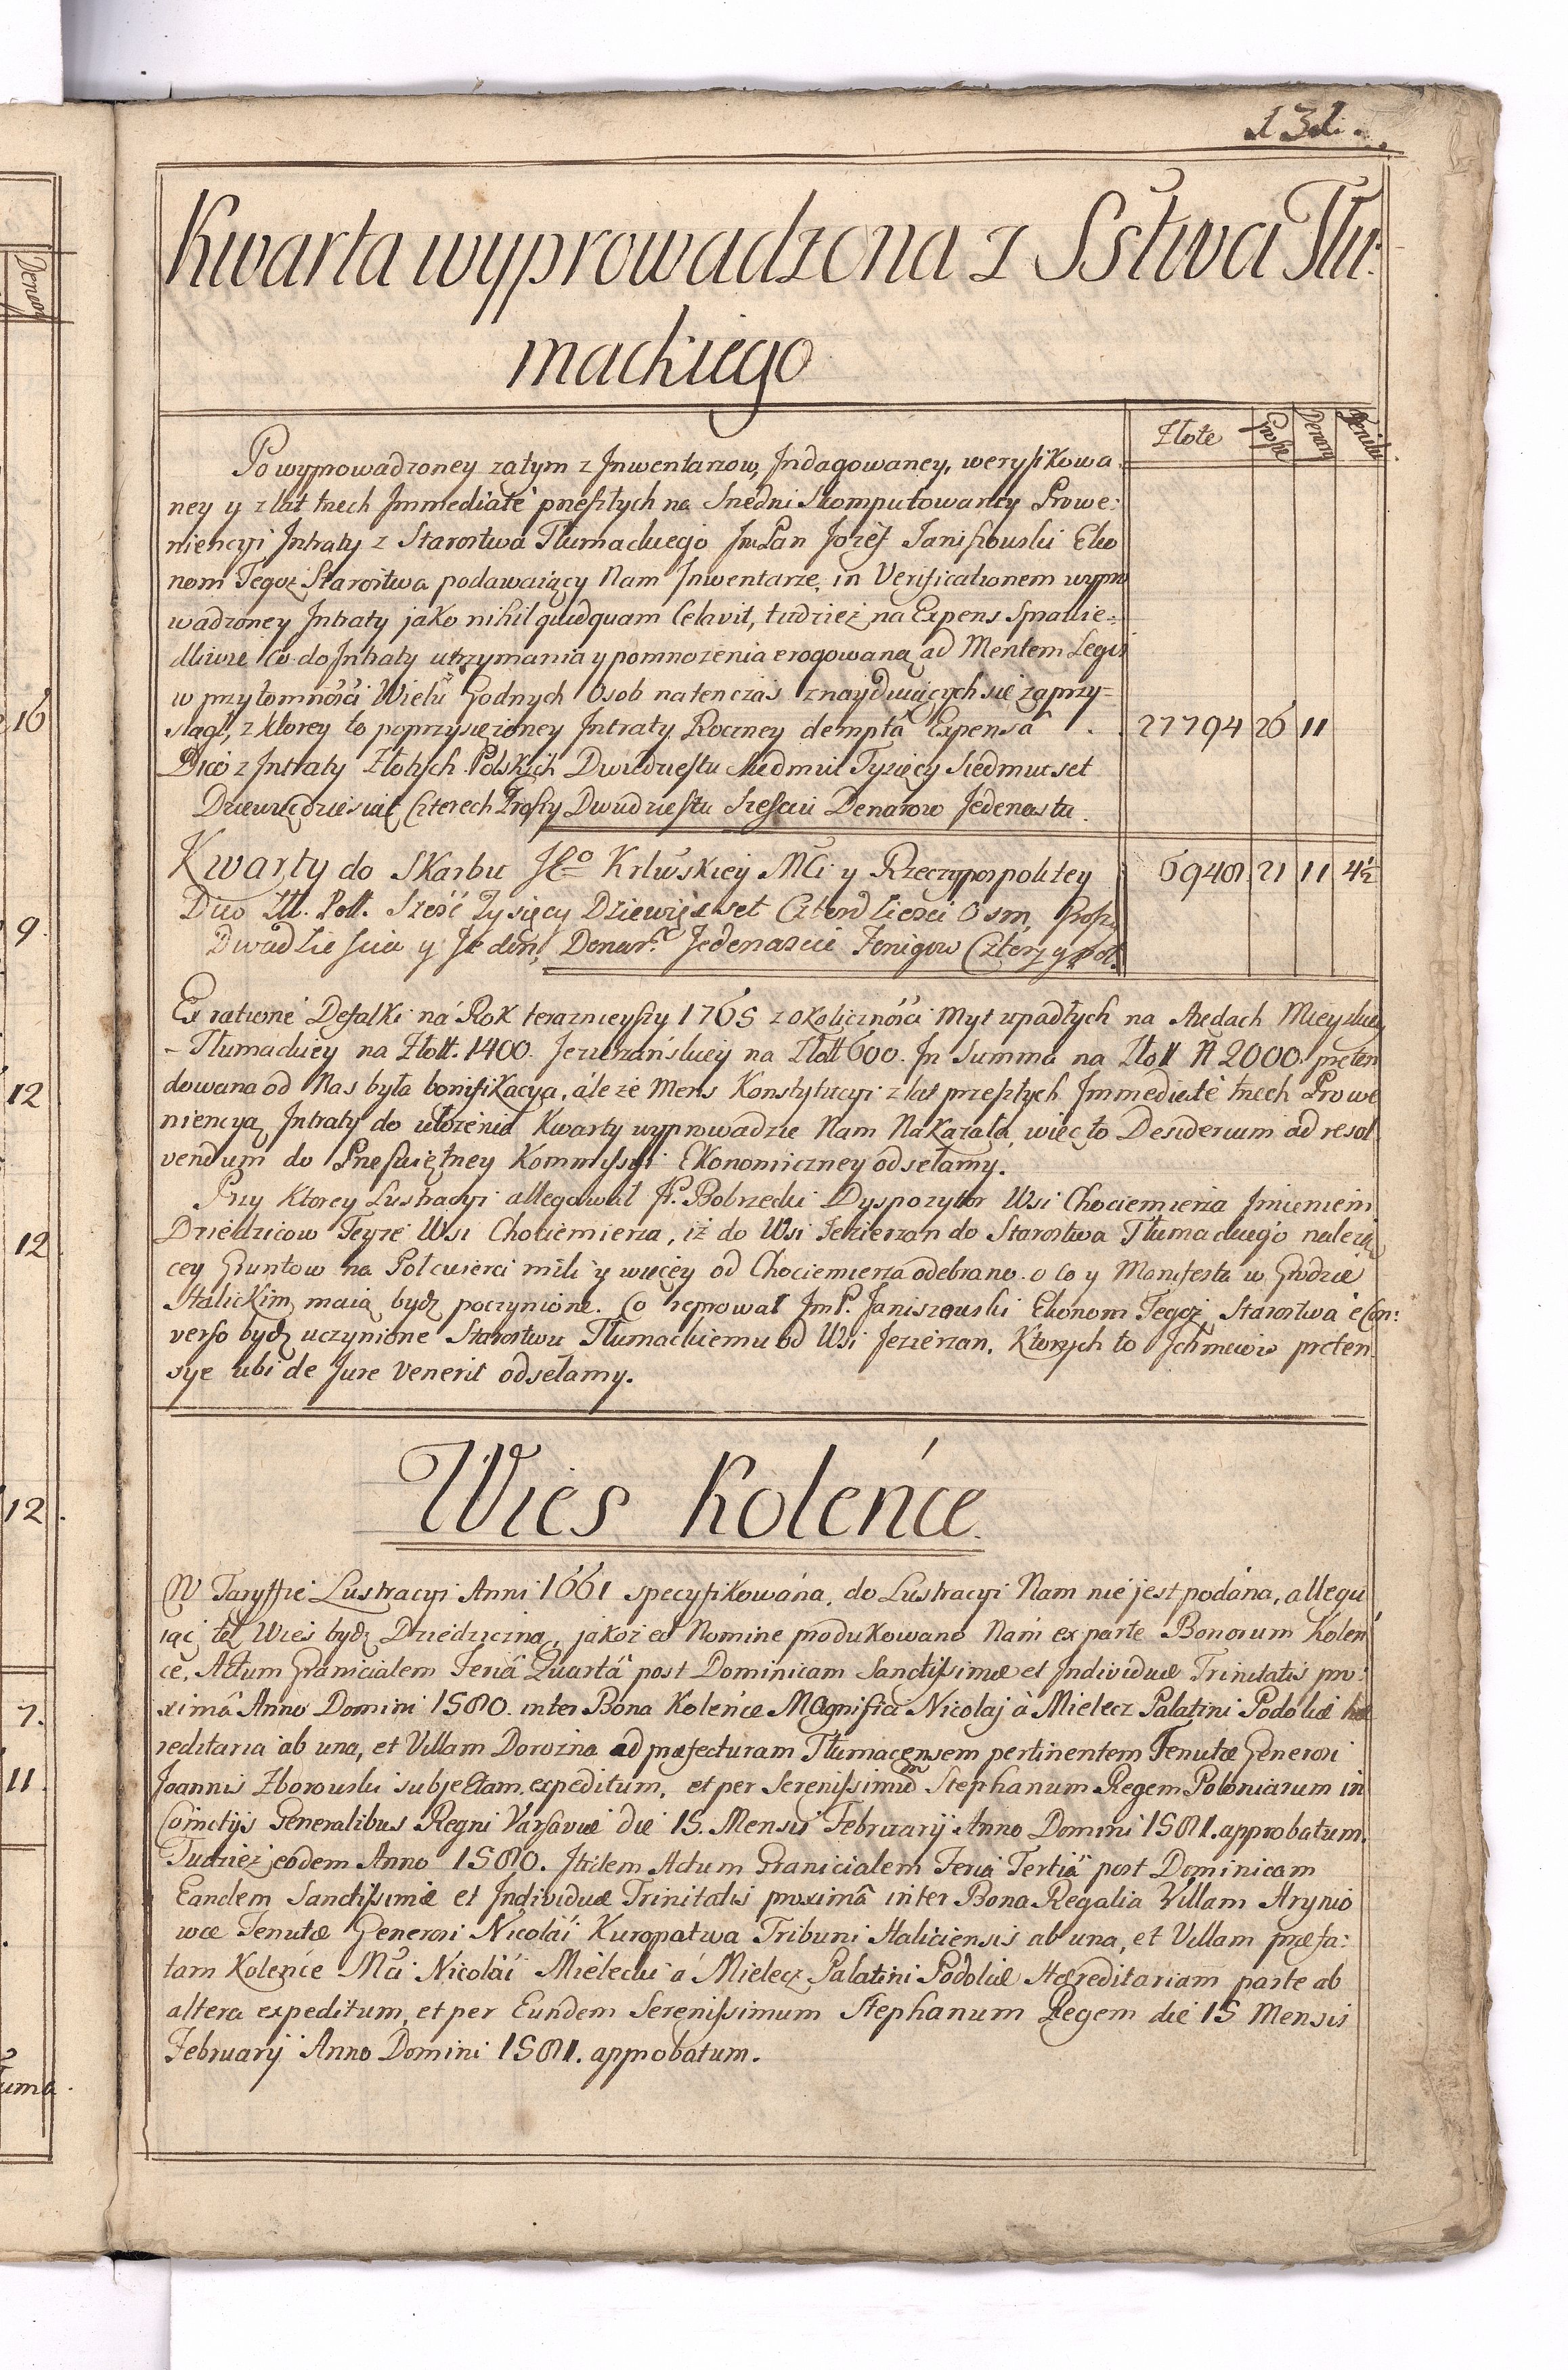 131.
Kwarta wyprowadzona z Sstwa Tłu-
mackiego
Złote Grosze Denary Fenik
Po wyprowadzoney zatym z Jnwentarzow, Jndagowaney, weryfikowa-
ney y z lat trzech Jmmediaté przeszłych na Srzedni Skomputowaney Prowe:
niencyi Jntraty z Starostwa Tłumackiego JmPan Jozef Janiszowski Eko
nom Tegoż Starostwa podawaiący Nam Jnwentarze, in Verificationem wypro
wadzoney Jntraty jako nihil quidquam Celavit, tudziez na Expens Sprawie-
dliwie Co do Jntraty utrzymania y pomnozenia erogowaną ad Mentem Legis
w przytomności Wielu Godnych Osob natenczas znayduiących się zaprzy=
siągł, z ktorey to poprzysięzoney Jntraty Roczney demptâ Expensâ . . 27794 26 11
Dico z Jntraty Złotych Polskich Dwudziestu Siedmiu Tysięcy Siedmiuset
Dziewięcdziesiąt Czterech Groszy Dwudziestu Szesciu Denarow Jedenastu.
Kwarty do Skarbu JKo Krlwskiey Mci y Rzeczypospolitey 6948 21 11 4½
Dico Zll. Poll. Sześć Tysięcy Dziewięćset Czterdzieści Osm, Groszy
Dwadzieścia y Jeden, Denar. Jedenascie Fenigow Cztery y poł.
Ex rationé Defalki na Rok teraznieyszy 1765 z okoliczności Myt upadłych na Aredach Mieyskiey
- Tłumackiey na Złott. 1400. Jezierzańskiey na Złott 600. Jn Summa na Złott N 2000. preten
dowana od Nas była bonifikacya, ále że Mens Konstytucyi z lat przeszłych Jmmediaté trzech Prowe
niencyą Jntraty do ułożenia Kwarty wyprowadzić Nam Nakazała, więc to Desiderium ad resol
vendum do Przeświętney Kommissyi Ekonomiczney odsełamy.
Przy Ktorey Lustracyi allegował JP. Bobrzecki Dyspozytor Wsi Chocimierza Jmieniem
Dziedzicow Teyże Wsi Chociemierza, iż do Wsi Jezierzan do Starostwa Tłumackiego nalezą
cey Gruntow na Połcwierci mili y więcey od Chociemierza odebrano. o Co y Manifesta w Grodzie
Halickim maią bydź poczynione. Co reprował JmP. Janiszowski Ekonom Tegoż Starostwa é Con:
verso bydź uczynione Starostwu Tłumackiemu od Wsi Jezierzan. Ktorych to Jchmciow preten
sye ubi de Jure venerit odsełamy.
Wies Koleńce.
W Taryffie Lustracyi Anni 1661 specyfikowána, do Lustracyi Nam nie jest podána, allegu
iąc tę Wieś bydź Dziedziczną, jakoż eo Nomine produkowano Nam ex parte Bonorum Koleń
ce, Actum Granicialem Feriâ Quartâ post Dominicam Sanctissimæ et Individuæ Trinitatis pro:
ximâ Anno Domini 1580. inter Bona Koleńce Magnifici Nicolaj à Mielecz Palatini Podoliæ hæ
reditaria ab una, et Villam Dorozna ad præfecturam Tłumacensem pertinentem Tenutæ Generosi
Joannis Zborowski subjectam, expeditum, et per Serenissimum Stephanum Regem Poloniarum in
Comitijs Generalibus Regni Varsaviæ die 15. Mensis Februarij Anno Domini 1581. approbatum.
Tudzież eodem Anno 1580. Jtidem Actum Granicialem Feria Tertiâ post Dominicam
Eandem Sanctissimæ et Individuæ Trinitatis proximâ inter Bona Regalia Villam Hrynio
wce Tenutæ Generosi Nicolai Kuropatwa Tribuni Haliciensis ab una, et Villam præfa:
tam Koleńce Mci Nicolai Mielecki á Mielecz Palatini Podoliæ Hæreditariam parte ab
altera expeditum, et per Eundem Serenissimum Stephanum Regem die 15 Mensis
Februarij Anno Domini 1581. approbatum.
Denary
16
9.
12
12
12
7.
11
uma.